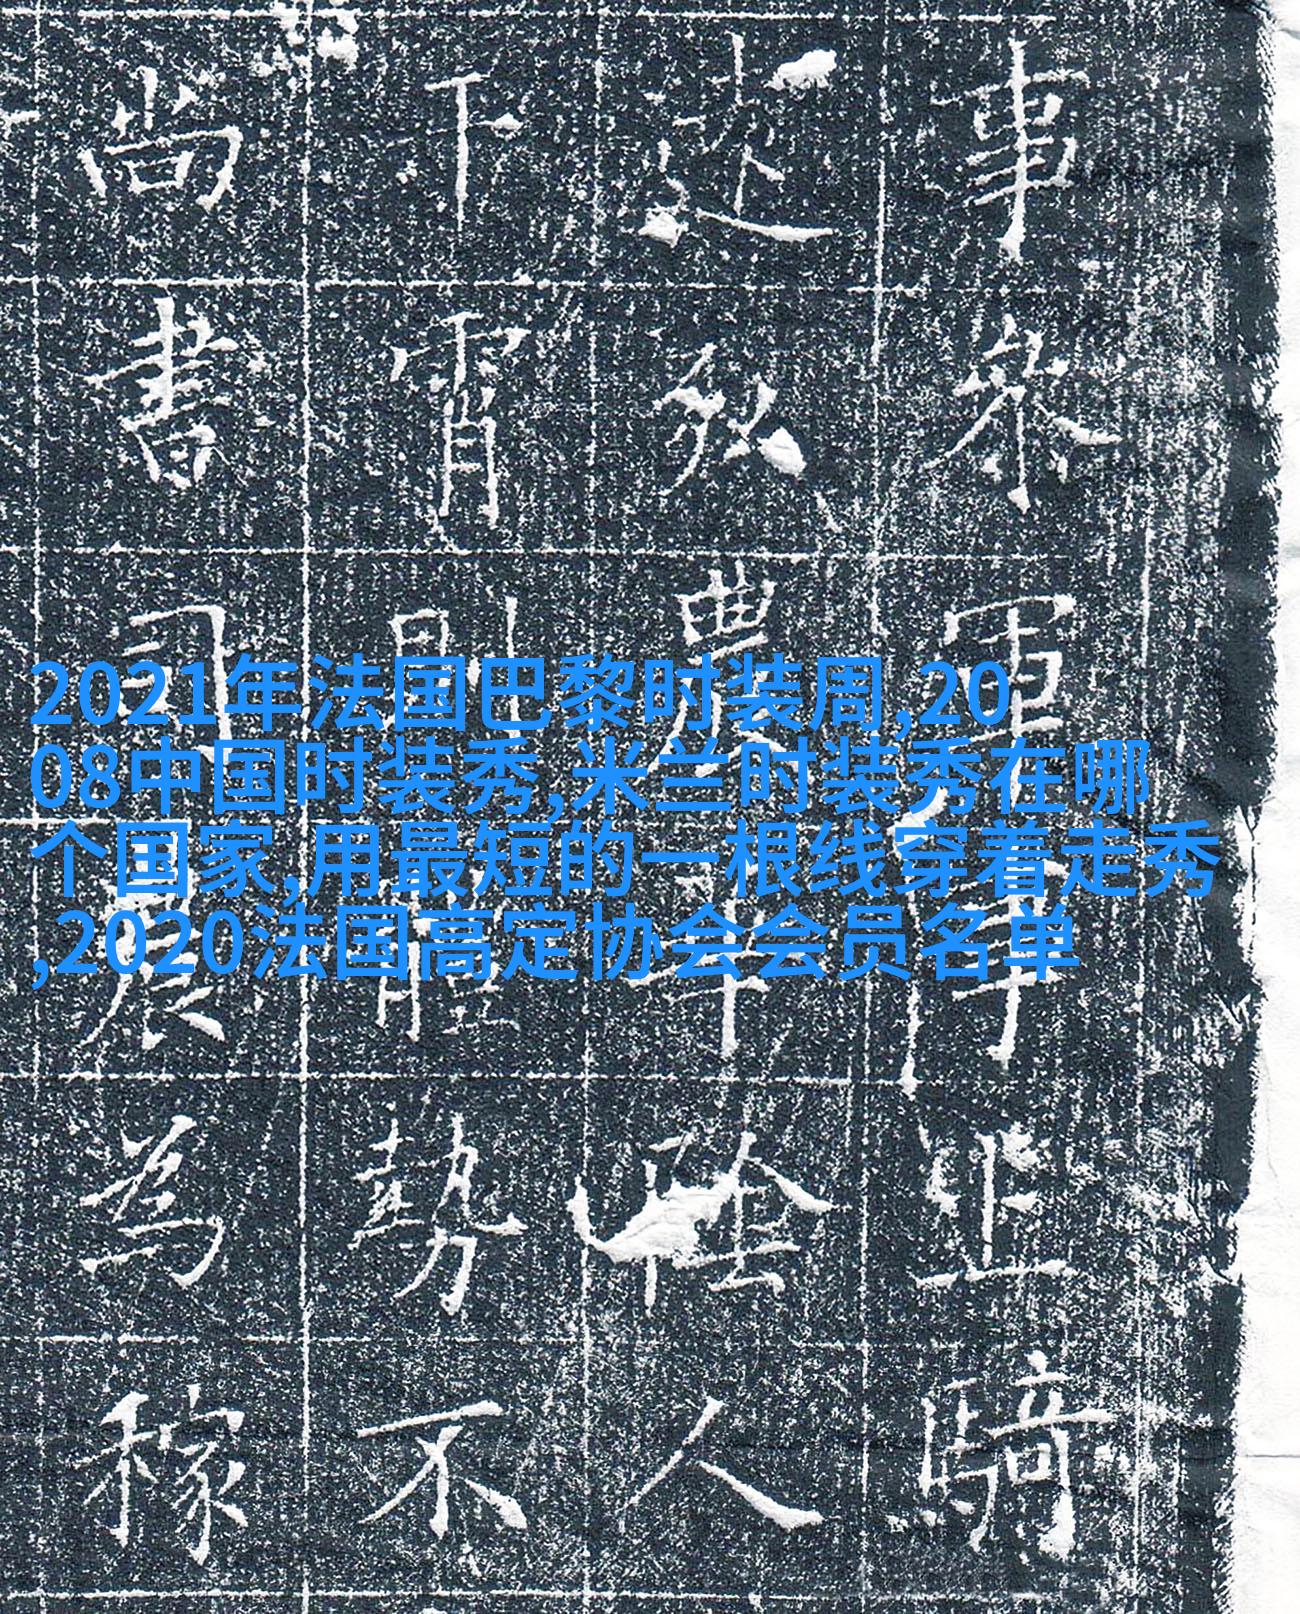 2021年法国巴黎时装周,20
08中国时装秀,米兰时装秀在哪
个国家,用最短的一根线穿着走秀
,2020法国高定协会会员名单
事叅軍事騎
於農陰人
下霄則體勢不
尚書司農為稼